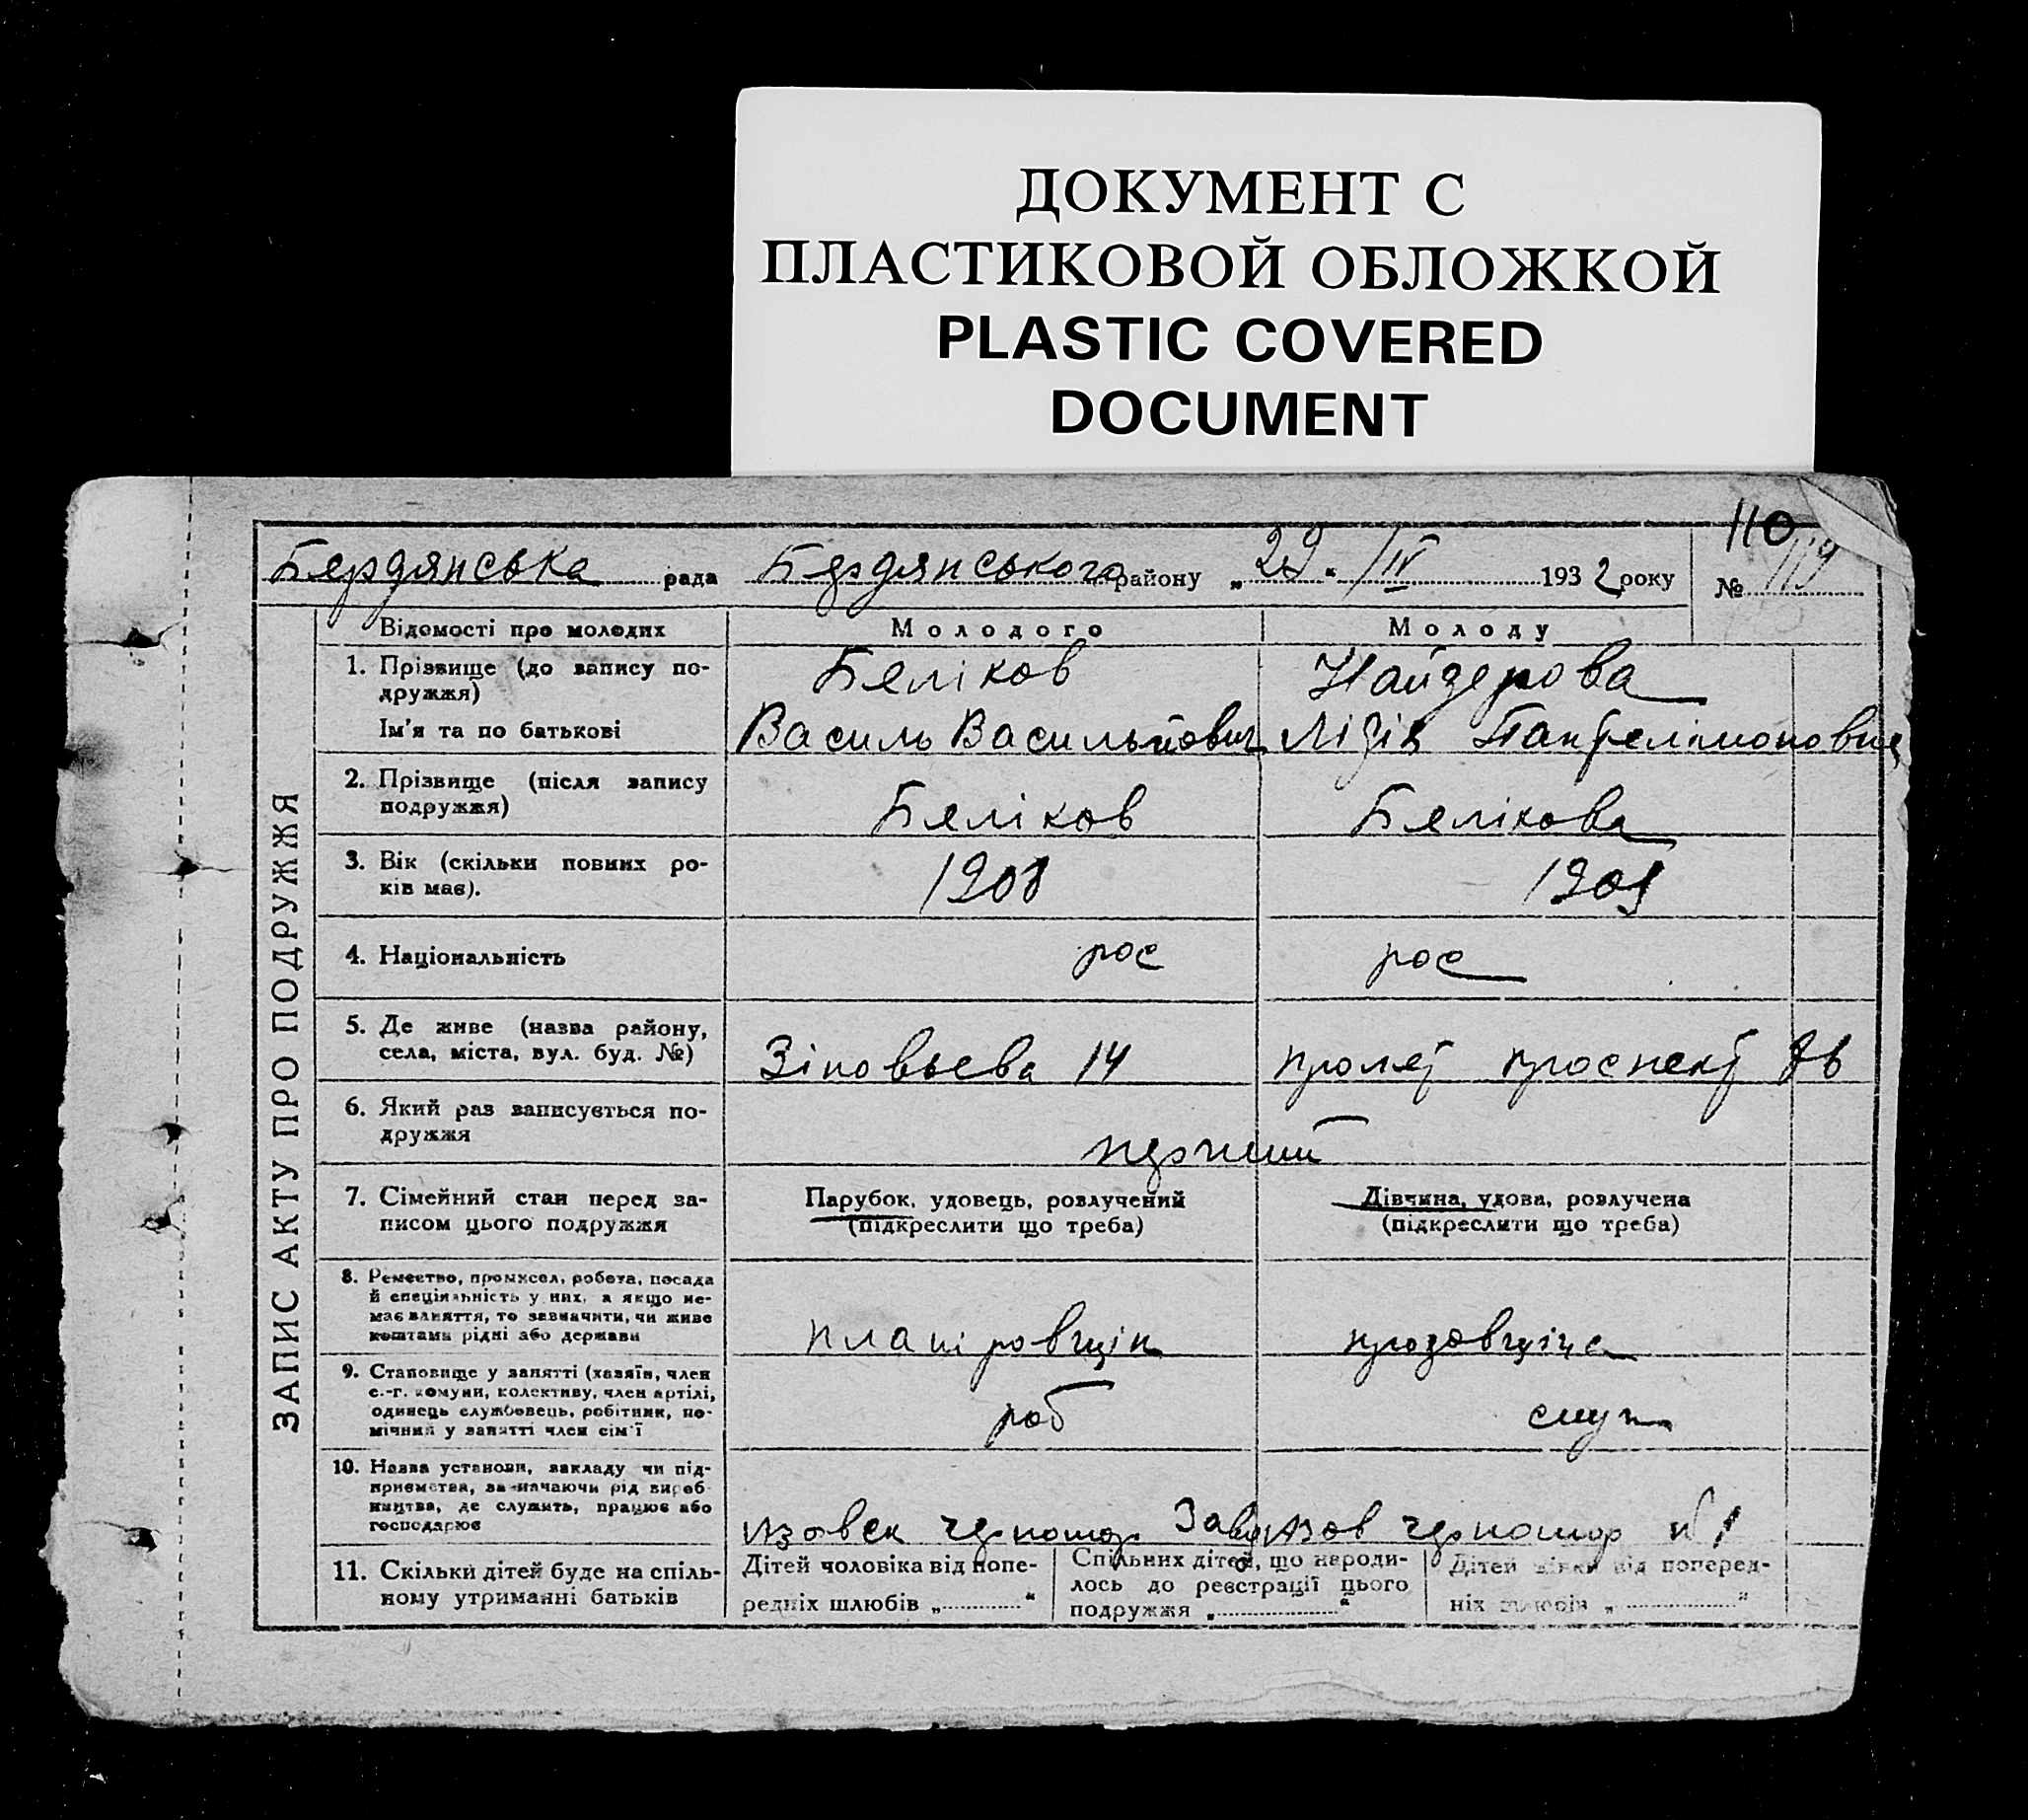 ДОКУМЕНТ С
ПЛАСТИКОВОЙ ОБЛОЖКОЙ
PLASTIC COVERED
DOCUMENT
110
Бердянська рада Бердянського району „29“ /IV 1932 року № 119
ЗАПИС АКТУ ПРО ПОДРУЖЖЯ
Відомості про молодих Молодого Молоду
1. Прізвище (до запису по-
дружжя) Беліков Найдерова
Ім'я та по батькові Василь Васильйович Лідія Пантелімоновна
2. Прізвище (після запису
подружжя) Беліков Белікова
3. Вік (скільки повних ро-
ків має). 1908 1909
4. Національність рос рос
5. Де живе (назва району,
села, міста, вул. буд. №) Зіновьева 14 пролет проспект
6. Який раз записується по-
дружжя перший
7. Сімейний стан перед за-
писом цього подружжя
Парубок, удовець, розлучений
(підкреслити що треба)
Дівчина, удова, розлучена
(підкреслити що треба)
8. Ремество, промисел, робота, посада
й спеціяльність у них, а якщо не-
має заняття, то зазначити, чи живе
коштами рідні або держави планіровщік продовщіца
9. Становище у занятті (хазяїн, член
с.-г. комуни, колективу, член артілі,
одинець службовець, робітник, по-
мічний у занятті член сім'ї роб служ
10. Назва установи, закладу чи під-
приємства, зазначаючи рід вироб-
ництва, де служить, працює або
господарює Азовск черномор Завод Азов черномор №1
11. Скільки дітей буде на спіль-
ному утриманні батьків
Дітей чоловіка від попе-
редніх шлюбів „ “
Спільних дітей, що народи-
лось до реєстрації цього
подружжя „ “
Дітей жінки від поперед-
ніх шлюбів „ “